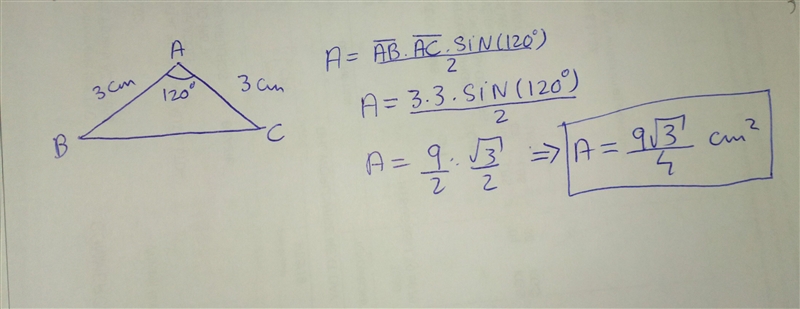 A
3cm 3cm
120°
B C
A = AB . AC . SIN(120°) / 2
A = 3.3. SIN(120°) / 2
A = 9/2 . √3/2 => A = 9√3/4 cm²